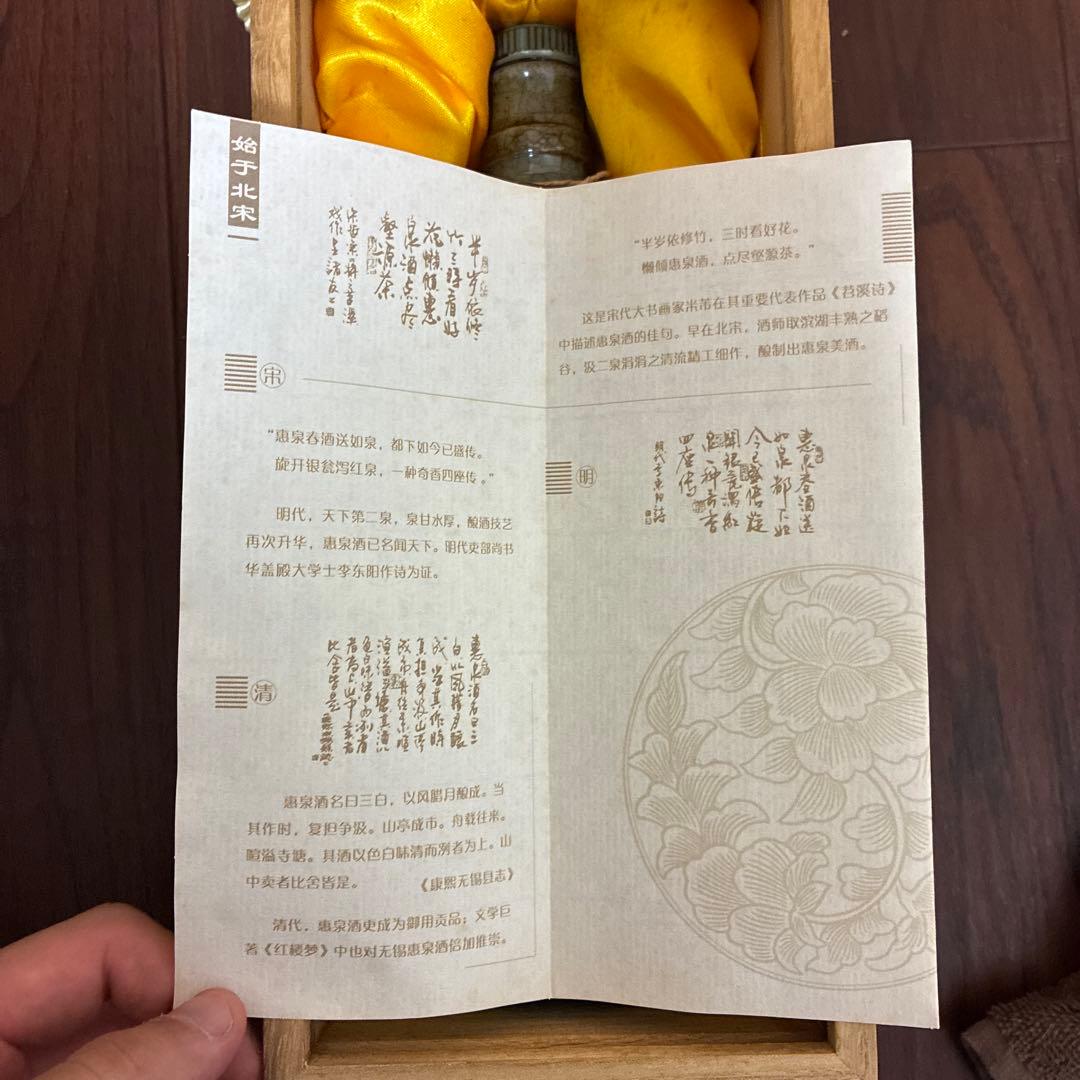 始于北宋
半岁依修
竹三时看好
花懒倾惠
泉酒点尽
壑源茶
戏作呈诸友
宋
“半岁依修竹，三时看好花。
懒倾惠泉酒，点尽壑源茶。”
这是宋代大书画家米芾在其重要代表作品《苕溪诗》
中描述惠泉酒的佳句。早在北宋，酒师取滨湖丰熟之稻
谷，汲二泉涓涓之清流精工细作，酿制出惠泉美酒。
“惠泉春酒送如泉，都下如今已盛传。
旋开银瓮泻红泉，一种奇香四座传。”
明代，天下第二泉，泉甘水厚，酿酒技艺
再次升华，惠泉酒已名闻天下。明代吏部尚书
华盖殿大学士李东阳作诗为证。
明
惠泉春酒送
如泉都下如
今已盛传旋
开银瓮泻红
泉一种奇香
四座传
明代李东阳诗
清
惠泉酒名曰三
白以风腊月酿
成当其作时
复担争汲山亭
惠泉酒名曰三白，以风腊月酿成。当
其作时，复担争汲。山亭成市。舟载往来。
喧溢寺塘。其酒以色白味清而冽者为上。山
中卖者比舍皆是。 《康熙无锡县志》
清代，惠泉酒更成为御用贡品；文学巨
著《红楼梦》中也对无锡惠泉酒倍加推崇。